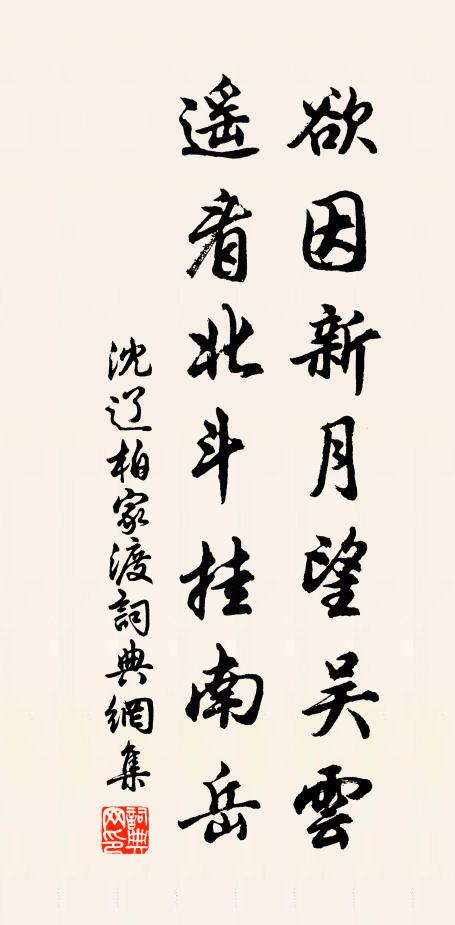 欲因新月望吴雲
遥看北斗挂南岳
沈辽柏家渡詞典網集
詞典网印